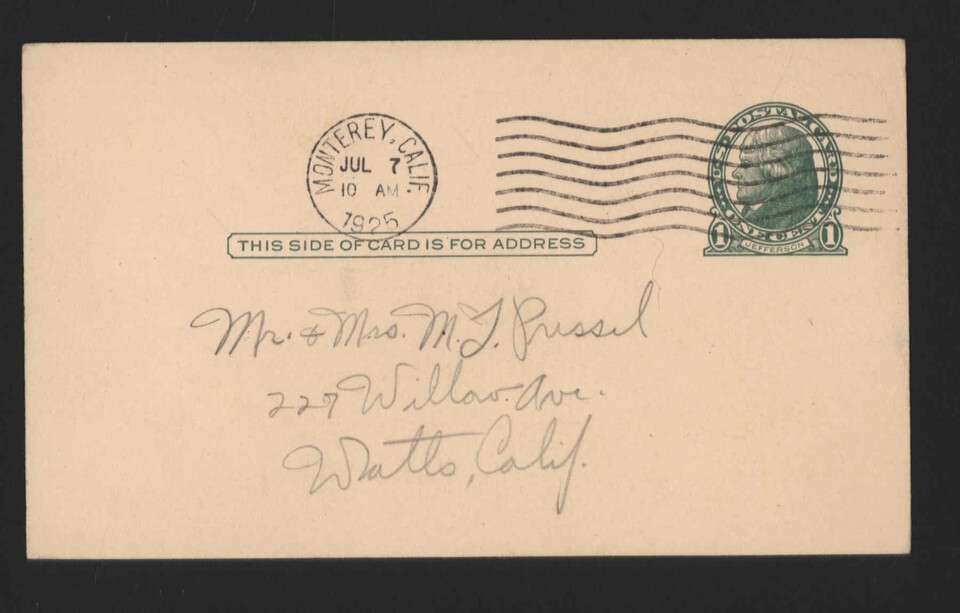 MONTEREY, CALIF.
JUL 7
10 AM
1925
U.S. POSTAL CARD
ONE CENT
1 JEFFERSON 1
THIS SIDE OF CARD IS FOR ADDRESS
Mr. & Mrs. M. L. Pressel
227 Willow Ave.
Watts, Calif.